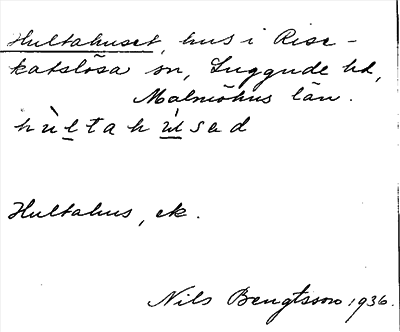 Hultahuset, hus i Rise-
katslösa sn, Luggude hd,
Malmöhus län.
hùltahúsəd
Hultahus, ek.
Nils Bengtsson 1936.